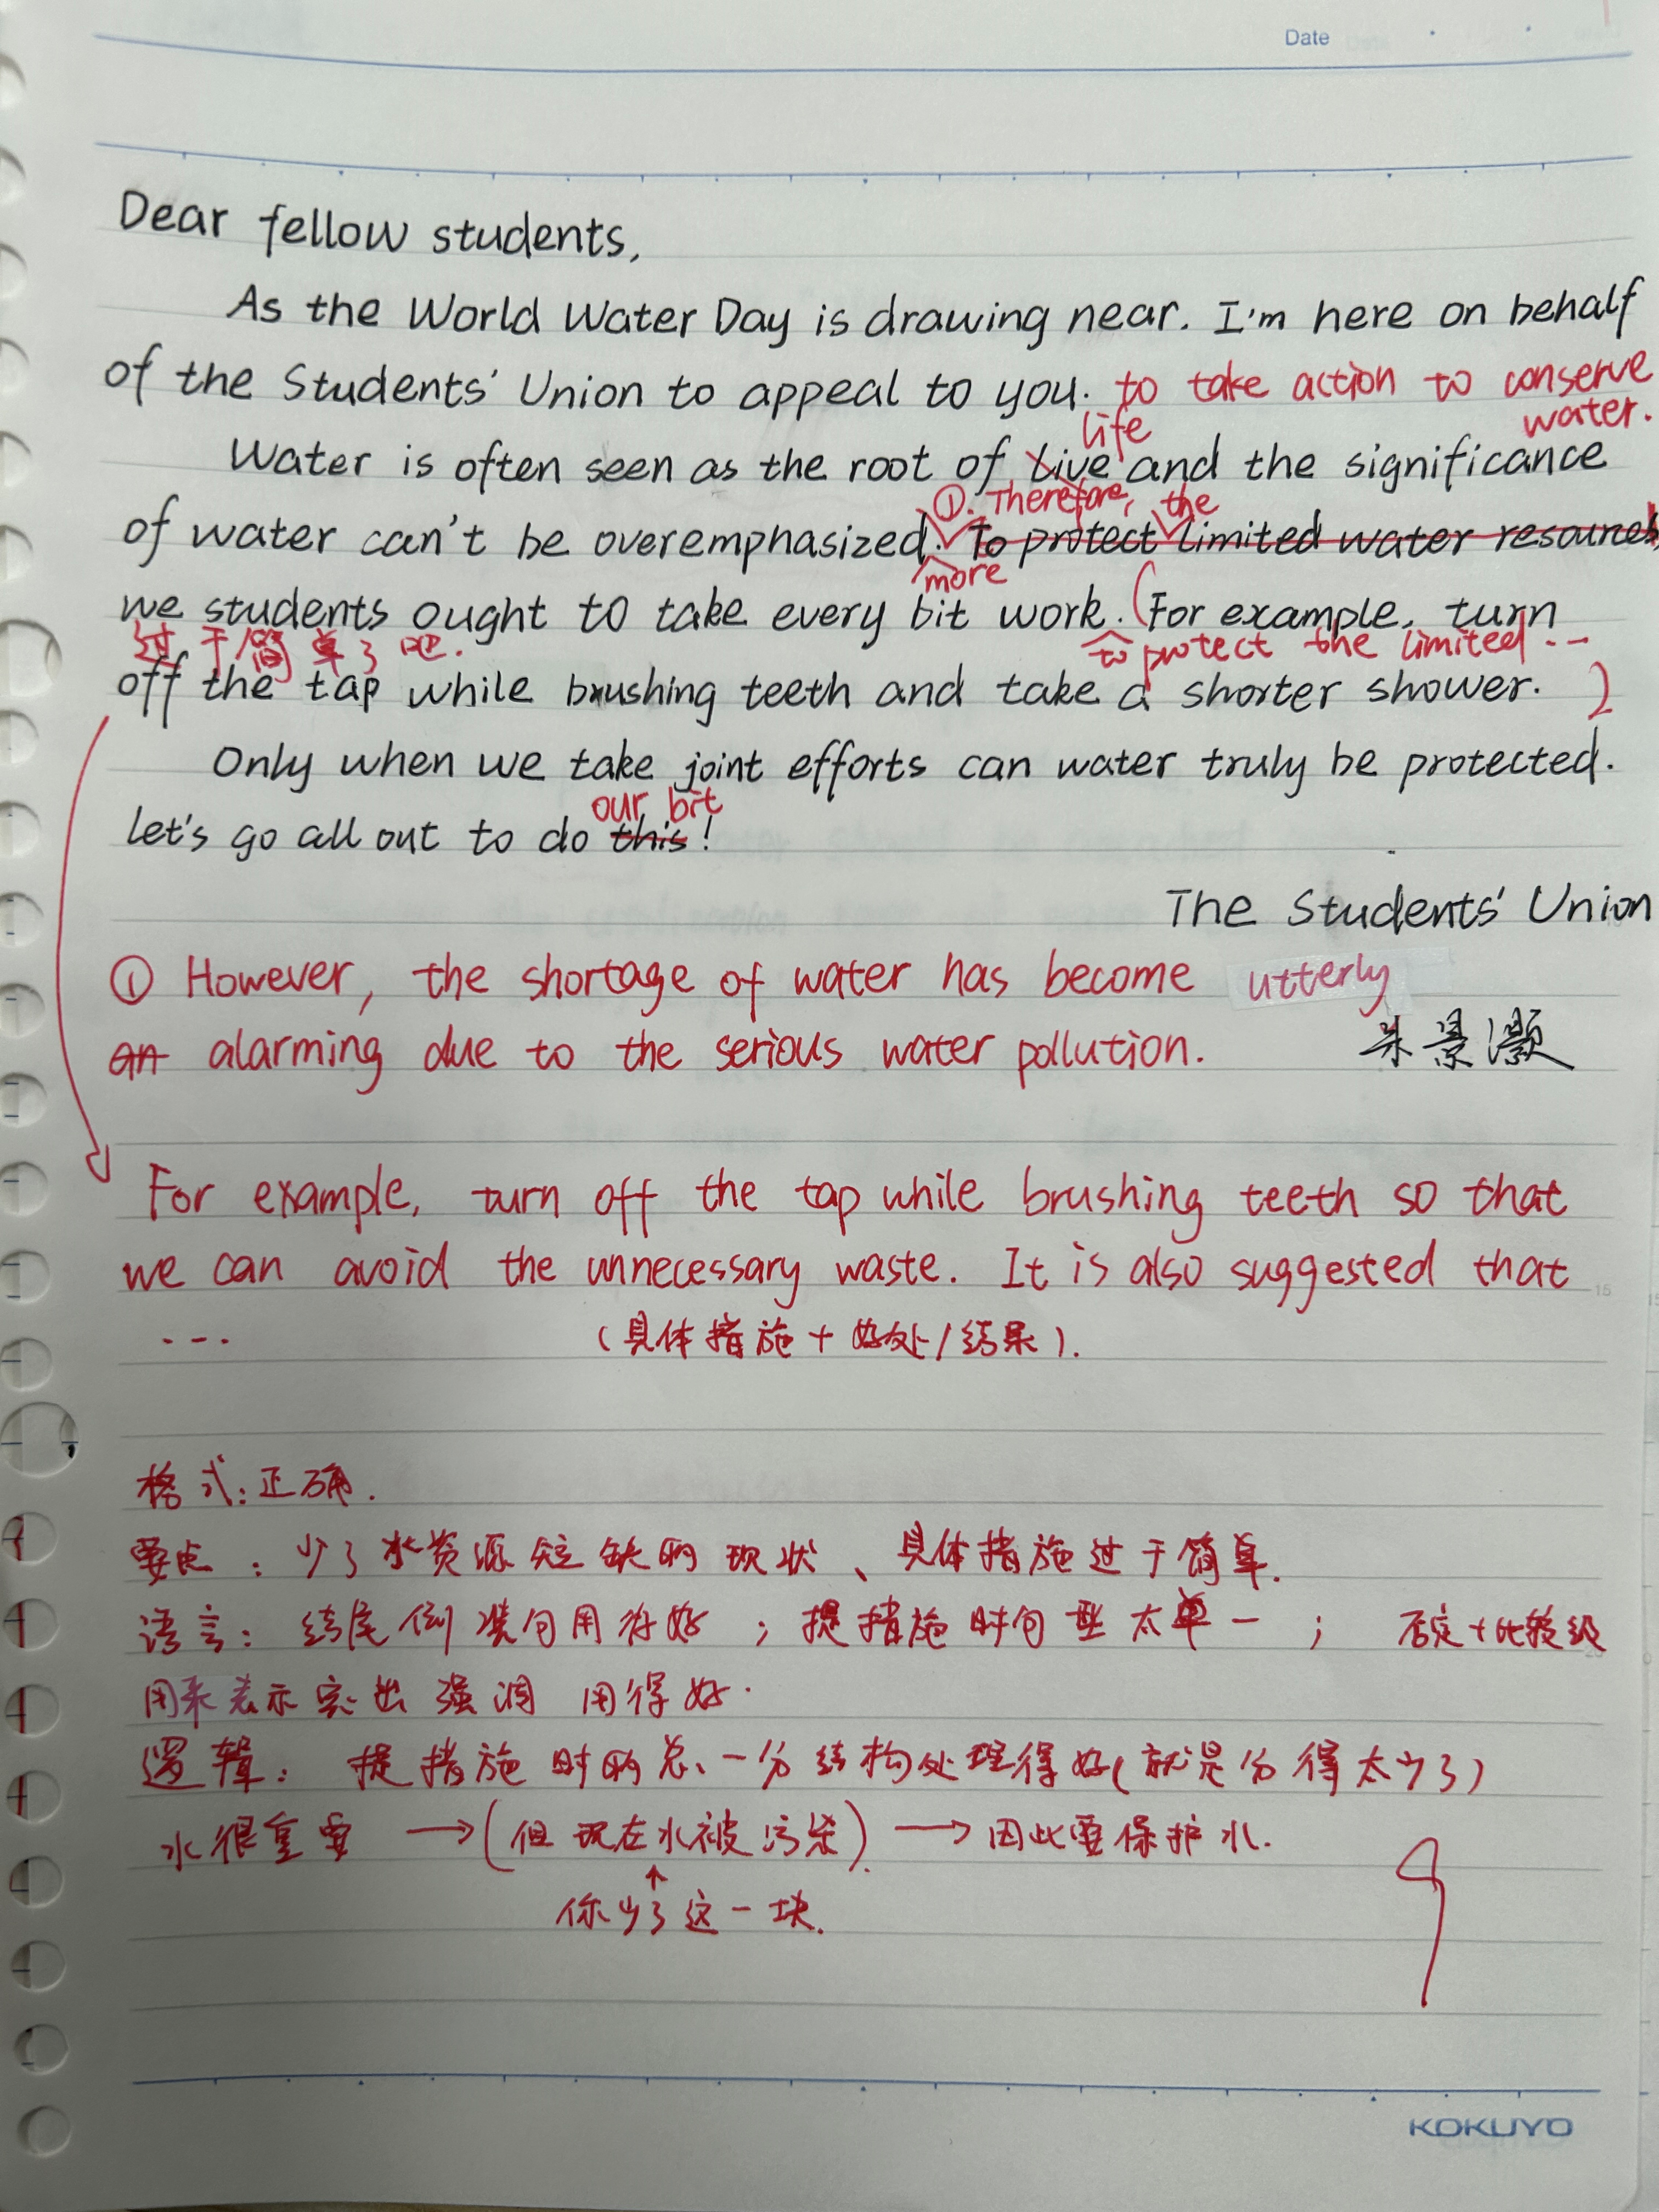 Date
Dear fellow students,
As the World Water Day is drawing near. I'm here on behalf
of the Students' Union to appeal to you. to take action to conserve
water.
life
Water is often seen as the root of live and the significance
①. Therefore, the
of water can't be overemphasized. To protect limited water resources
more
we students ought to take every bit work. (For example, turn
过于简单了吧. to protect the limited ...
off the tap while brushing teeth and take a shorter shower. )
Only when we take joint efforts can water truly be protected.
our bit
let's go all out to do this!
The Students' Union
① However, the shortage of water has become utterly
an alarming due to the serious water pollution.
朱景灏
For example, turn off the tap while brushing teeth so that
we can avoid the unnecessary waste. It is also suggested that
... (具体措施+好处/结果).
格式:正确.
要点:少了水资源短缺的现状、具体措施过于简单.
语言:结尾倒装句用得好;提措施时句型太单一; 否定+比较级
用来表示突出强调 用得好.
逻辑:提措施时的总-分结构处理得好(就是分得太少了)
水很重要 →(但现在水被污染).→因此要保护水.
↑
你少了这一块.
9
KOKUYO